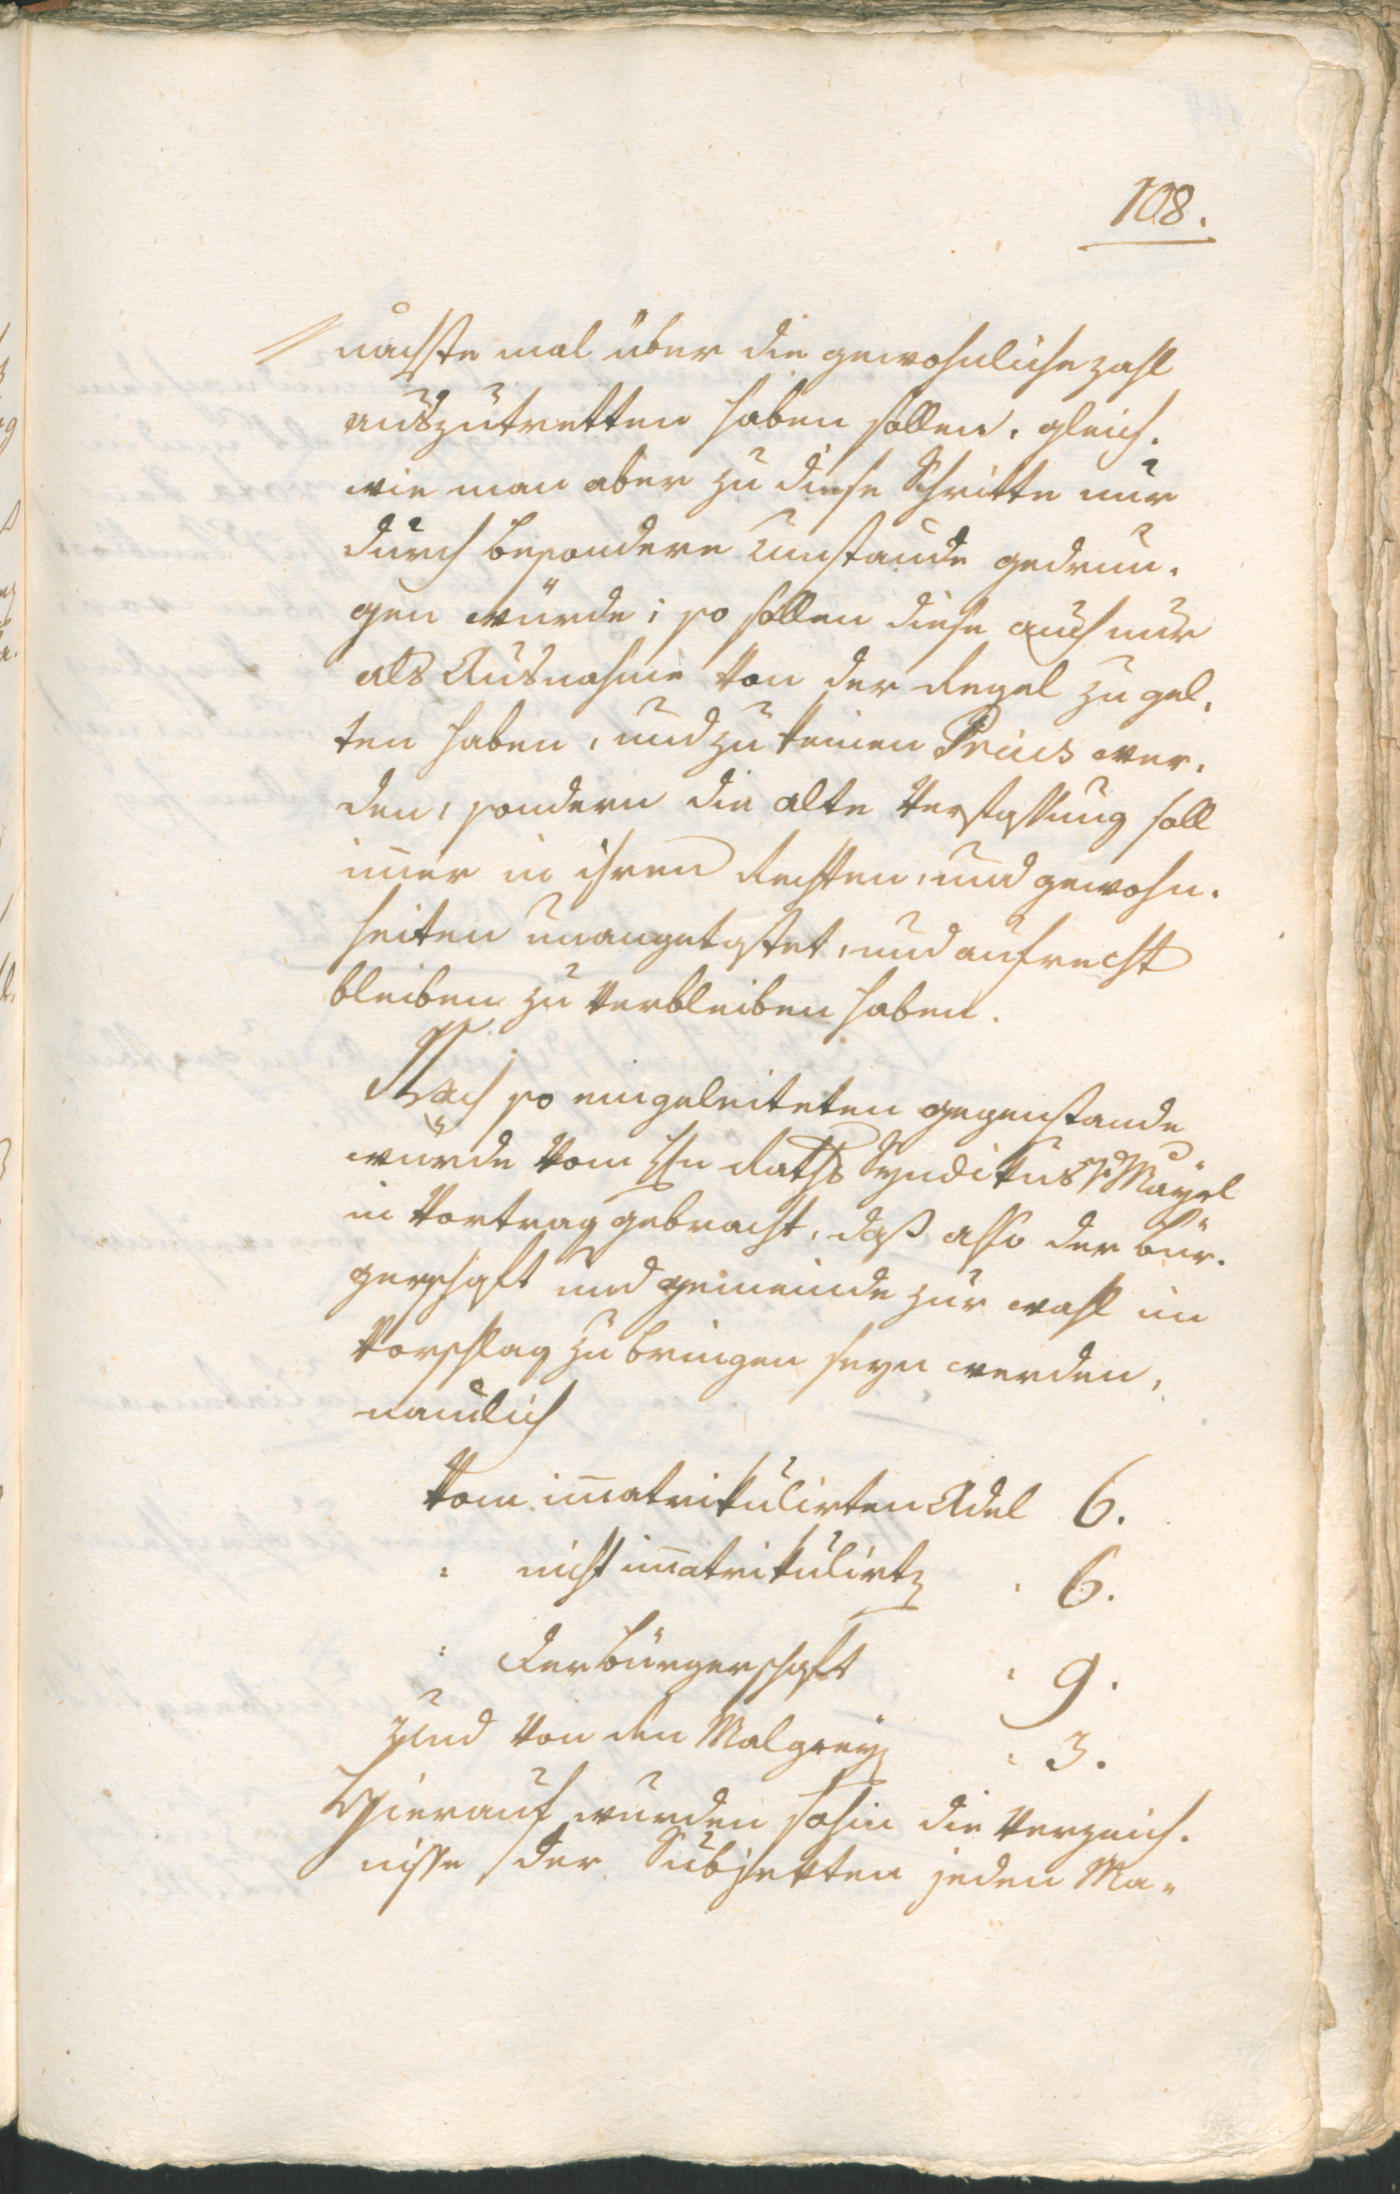 108.
nächste mal über die gewohnliche zahl
auszutretten haben sollen. gleich-
wie man aber zu diese Schritte nur
durch besondere Umstande gedrun-
gen würde; so sollen diese auch nur
als Ausnahme von der Regel zu gel-
ten haben, und zu keinen Prius wer-
den, sondern die alte Verfassung soll
im̄er in ihren Rechten, und gewohn-
heiten unangetastet, und aufrecht
bleiben zu verbleiben haben.
Nach so eingeleiteten gegenstande
würde vom Hn Raths Syndikus v: Mayrl
in Vortrag gebracht, daß also der Bür-
gerschaft und gemeinde zur wahl im
Vorschlag zu bringen seyn werden,
namlich
Vom im̄atrikulirten Adel 6.
: nicht im̄atrikulirten : 6.
: der Bürgerschaft : 9.
und von den Malgreyen : 3.
Hierauf wurden sohin die Verzeich-
nisse der Subjekten jeden Ma-